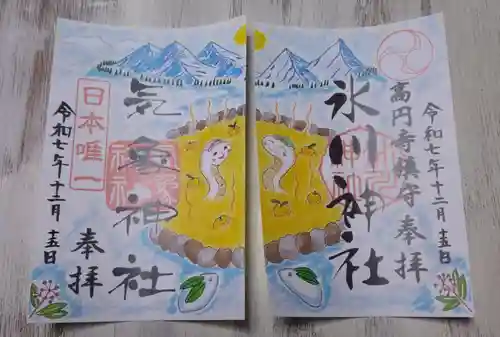 高円寺鎮守 奉拝
氷川神社
令和七年十二月十五日
日本唯一
気象神社
奉拝
令和七年十二月十五日